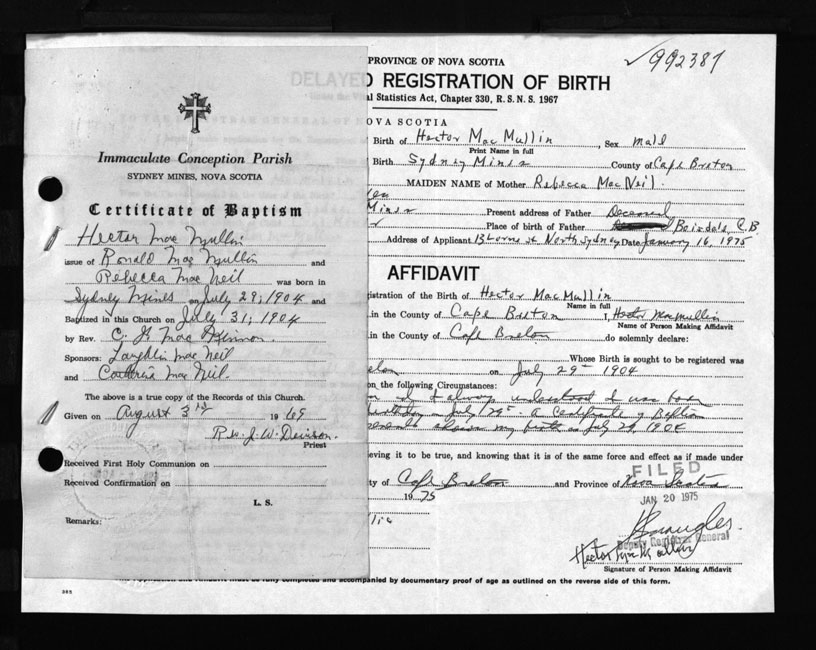 Immaculate Conception Parish
SYDNEY MINES, NOVA SCOTIA
Certificate of Baptism
Hector Mac Mullin
issue of Ronald Mac Mullin and
Rebecca Mac Neil was born in
Sydney Mines on July 29, 1904 and
Baptized in this Church on July 31, 1904
by Rev. C. F. Mac Kinnon
Sponsors: Lauchlin Mac Neil
and Catherine Mac Neil.
The above is a true copy of the Records of this Church.
Given on August 3rd 1969
Rev. J. W. Devison.
Priest
Received First Holy Communion on
Received Confirmation on
L. S.
Remarks:
PROVINCE OF NOVA SCOTIA
992387
DELAYED REGISTRATION OF BIRTH
al Statistics Act, Chapter 330, R. S. N. S. 1967
NOVA SCOTIA
Birth of Hector Mac Mullin, Sex male
Print Name in full
Birth Sydney Mines County of Cape Breton
MAIDEN NAME of Mother Rebecca Mac Neil.
Mines Present address of Father Deceased
Place of birth of Father Boisdale, C.B.
Address of Applicant North Sydney Date January 16, 1975
AFFIDAVIT
istration of the Birth of Hector Mac Mullin
Name in full
in the County of Cape Breton I, Hector Macmullin
Name of Person Making Affidavit
in the County of Cape Breton do solemnly declare:
Whose Birth is sought to be registered was
on July 29th 1904
on the following Circumstances:
I always understood I was born
July 29th. A Certificate of Baptism
shows my birth as July 29, 1904
ieving it to be true, and knowing that it is of the same force and effect as if made under
ty of Cape Breton and Province of Nova Scotia
FILED
1975
JAN 20 1975
Deputy Registrar General
Hector
Signature of Person Making Affidavit
must be fully completed and accompanied by documentary proof of age as outlined on the reverse side of this form.